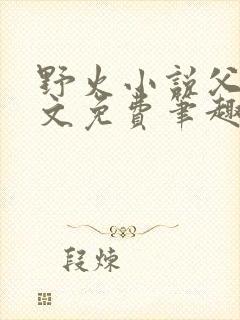 野火小说父
文免费笔趣
段炼